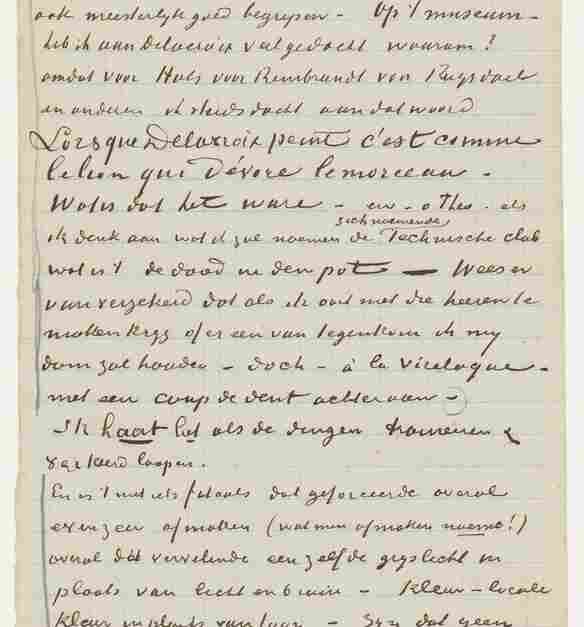 ook meesterlyk goed begrypen – Op 't museum –
heb ik aan Delacroix veel gedacht waarom?
omdat voor Hals voor Rembrandt voor Ruysdael
en anderen ik steeds dacht aan dat woord
Lorsque Delacroix peint c'est comme
le lion qui dévore le morceau –
Wat is dat het ware – en – o Theo – als
zich noemende
ik denk aan wat ik zoe noemen de Technische club
wat is 't de dood in den pot — Wees er
van verzekerd dat als ik ooit met die heeren te
maken kryg of er een van tegenkom ik my
dom zal houden – doch – à la Vireloque –
met een coup de dent achteraan –
Ik haat het als de dingen tramenen &
verkeerd loopen.
En is 't niet iets fataals dat geforceerde overal
evenzeer afmaken (wat men afmaken noemt!)
overal dat vervelende eenzelfde grys licht in
plaats van licht en bruin – kleur – locale
kleur in plaats van toon – Is dat geen